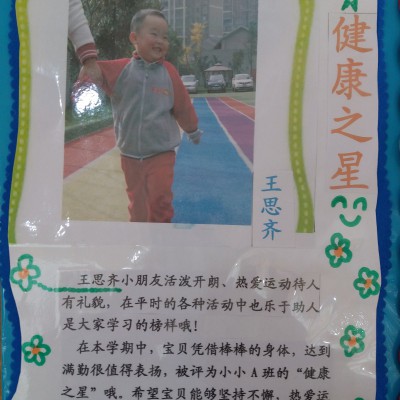 健康之星
王思齐
王思齐小朋友活泼开朗、热爱运动待人
有礼貌，在平时的各种活动中也乐于助人
是大家学习的榜样哦！
在本学期中，宝贝凭借棒棒的身体，达到
满勤很值得表扬，被评为小小A班的“健康
之星”哦。希望宝贝能够坚持不懈，热爱运